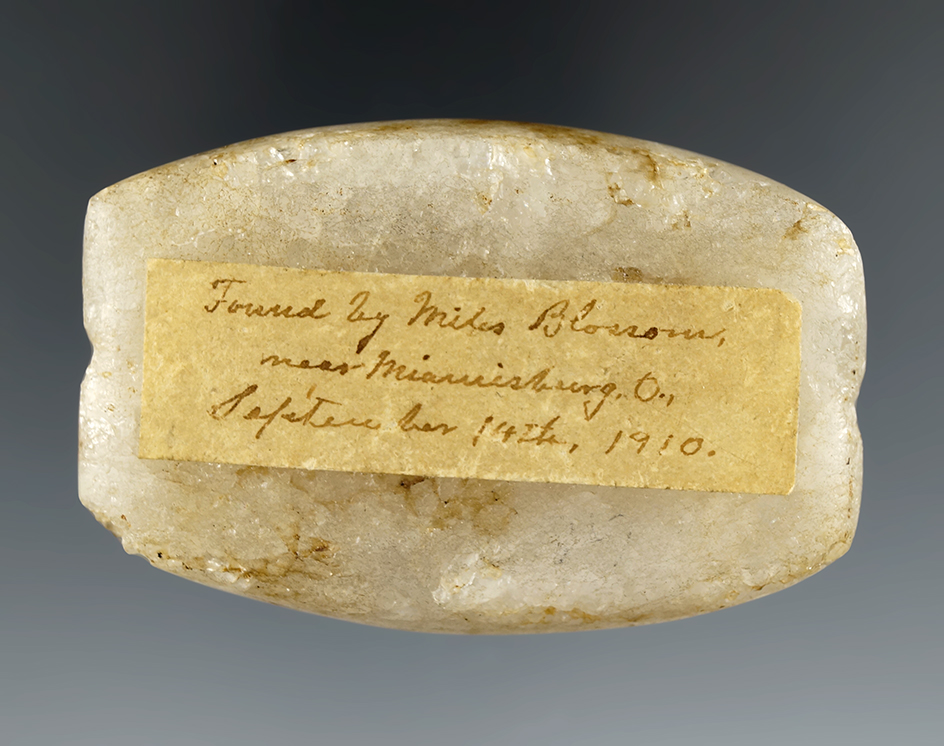 Found by Miles Blossom,
near Miamisburg. O.,
September 14th, 1910.